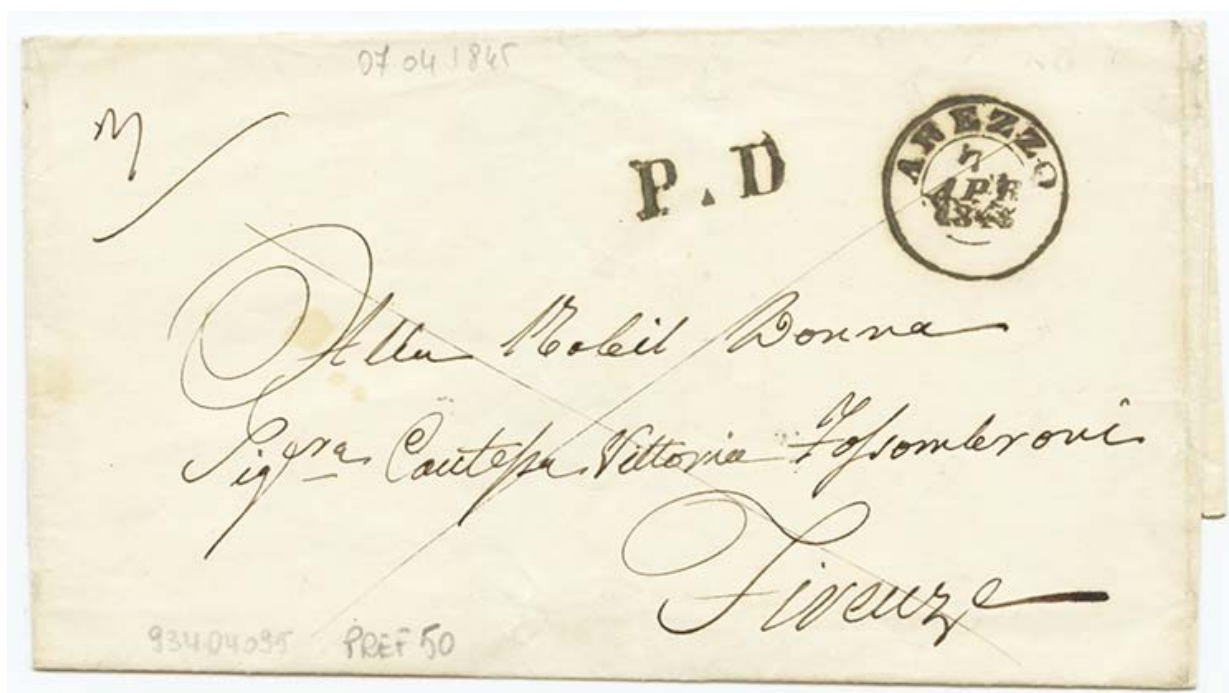 07.04.1845
P.D
AREZZO
7
APR
Alla Nobil Donna
Sig.ra Contessa Vittoria Fossombroni
Firenze
93404095 PREF 50